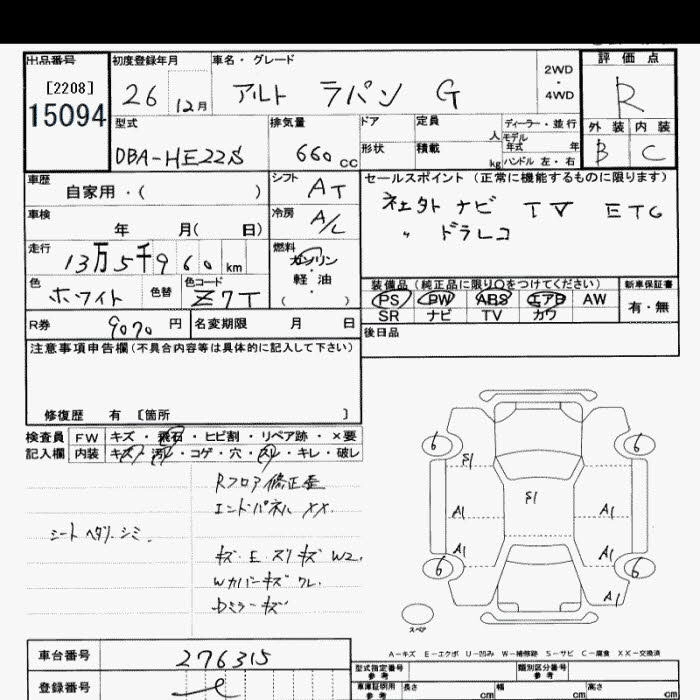 出品番号 初度登録年月 車名・グレード 2WD・4WD 評価点
[2208]
15094
26 12月 アルト ラパン G R
型式 排気量 ドア 定員 人 ディーラー・並行 外装 内装
DBA-HE22S 660cc 形状 積載 kg モデル年式 年 ハンドル 左・右 B C
車歴 自家用・( ) シフト AT セールスポイント (正常に機能するものに限ります)
車検 年 月( 日) 冷房 A/C ナビ TV ETC
走行 13万5千960km 燃料 ガソリン・軽油・( ) 〃 ドラレコ
色 ホワイト 色替 色コード Z7T
装備品 (純正品に限り○をつけてください) 新車保証書
PS PW ABS エアB AW 有・無
SR ナビ TV カワ
R券 9070円 名変期限 月 日 後日品
注意事項申告欄(不具合内容等は具体的に記入して下さい)
修復歴 有 [箇所 ]
検査員記入欄 FW キズ・飛石・ヒビ割・リペア跡・×要
内装 キズ・汚レ・コゲ・穴・スレ・キレ・破レ
Rフロア修正歪
エンドパネル XX.
シート ヘタリ.シミ.
キズ.E.スリキズ W2.
Wカバーキズ ワレ.
Dミラーキズ
6 6
S1
S1
A1 A1
A1 A1
6 6
A1
スペア
A-キズ E-エクボ U-凹み W-補修跡 S-サビ C-腐食 XX-交換済
車台番号 276315
登録番号
型式指定番号 参考 類別区分番号 参考
車庫証明用 参考 長さ cm 幅 cm 高さ cm